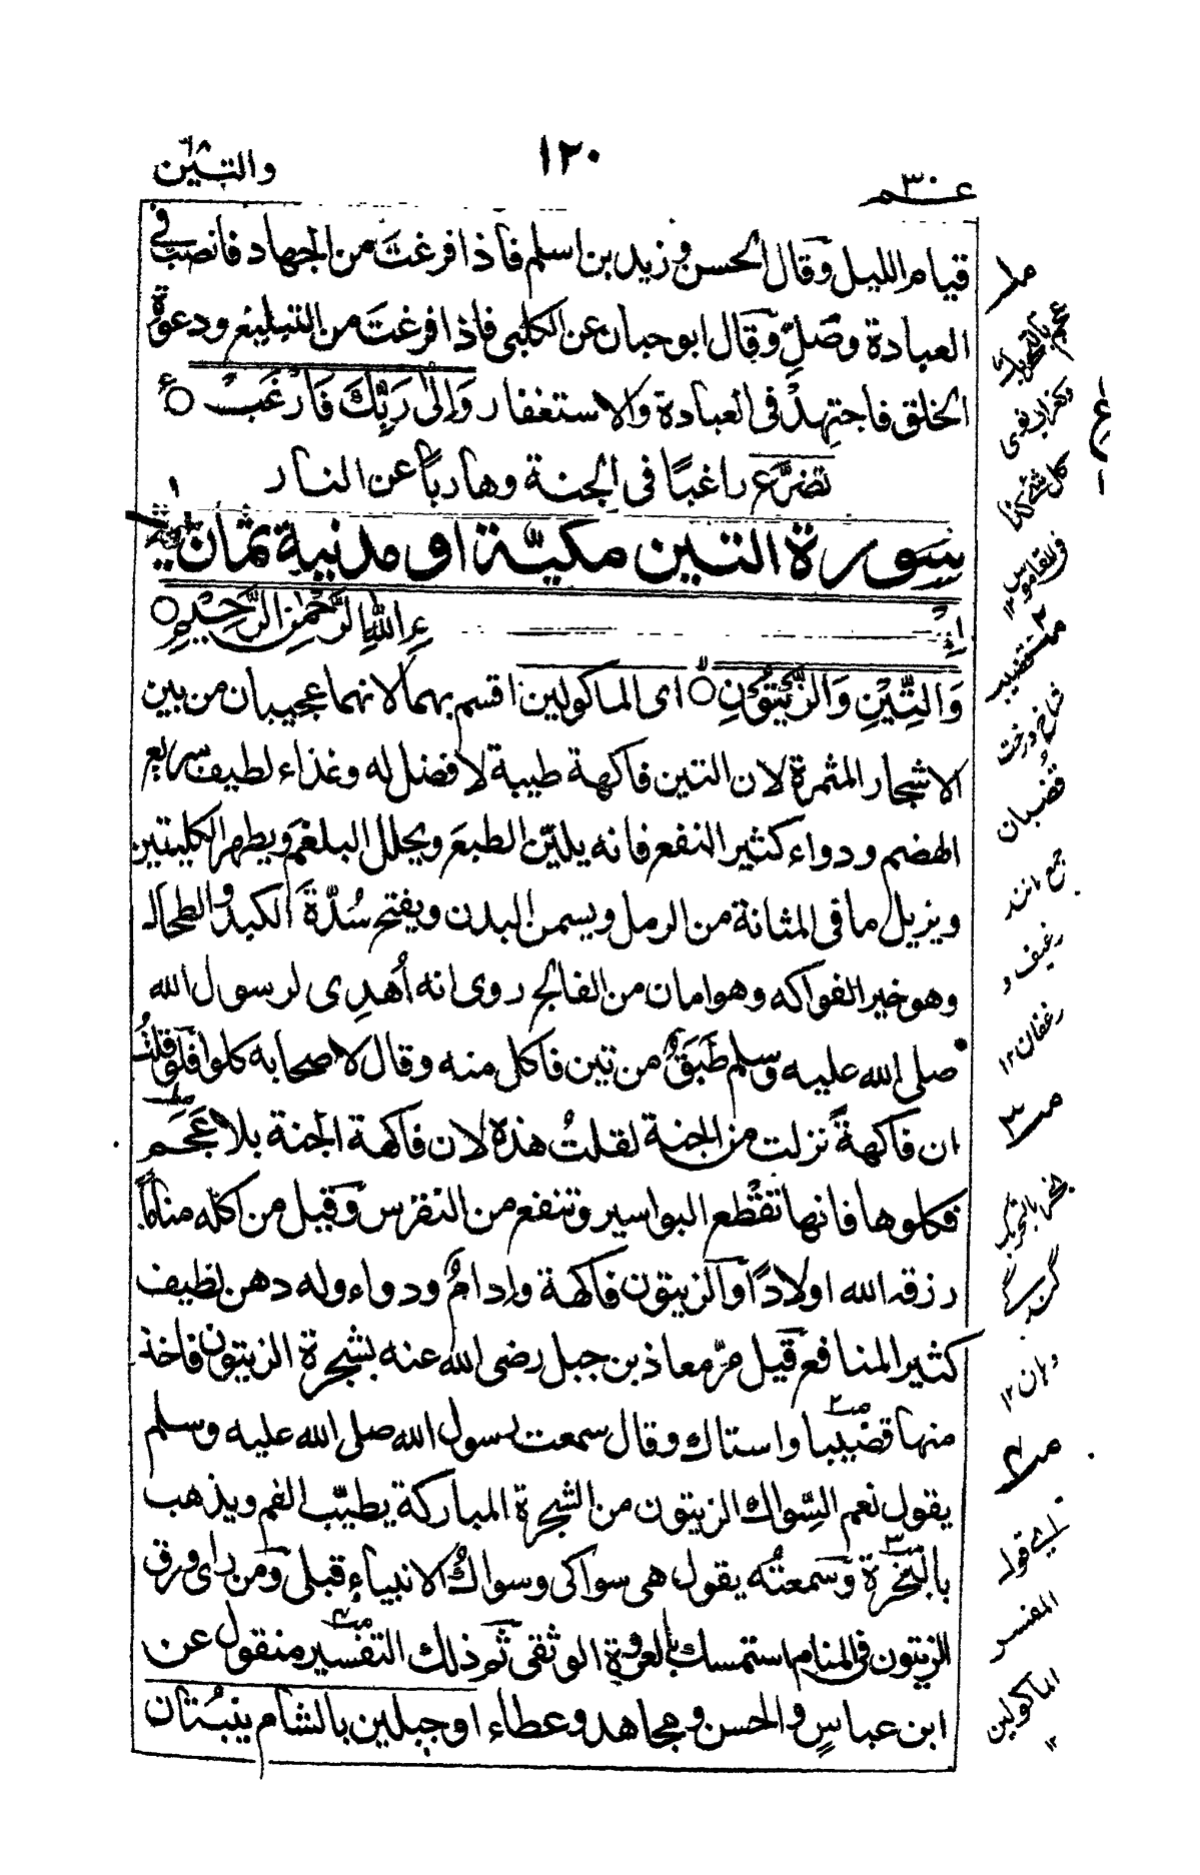 والتين
١٢٠
عم ٣٠
قيام الليل وقال الحسن وزيد بن اسلم فاذا فرغتَ من الجهاد فانصب في
العبادة وصَلِّ وقال ابو حبان عن الكلبي فاذا فرغتَ من التبليغ ودعوة
الخلق فاجتهِدْ في العبادة والاستغفار وَاِلٰى رَبِّكَ فَارْغَبْ
تضرَّع راغبًا في الجنة وهاربًا عن النار
سورة التين مكيّة او مدنية ثمان
اللهِ الرَّحْمٰنِ الرَّحِيْمِ
وَالتِّيْنِ وَالزَّيْتُوْنِ اى الماكولين اقسم بهما لانهما عجيبان من بين
الاشجار المثمرة لان التين فاكهة طيبة لا فضل له وغذاء لطيف سريع
الهضم ودواء كثير النفع فانه يليّن الطبعَ ويحلل البلغم ويطهر الكليتين
ويزيل ما في المثانة من الرمل ويسمن البدن ويفتح سُدّةَ الكبد والطحال
وهو خير الفواكه وهو امان من الفالج روى انه اُهدِى لرسول الله
صلى الله عليه وسلم طَبَقٌ من تين فاكل منه وقال لاصحابه كلوا فلو قلتُ
ان فاكهةً نزلت من الجنة لقلتُ هذه لان فاكهة الجنة بلا عَجَم
فكلوها فانها تقطع البواسير وتنفع من النقرس وقيل من اكله منامًا
رزقه الله اولادًا والزيتون فاكهة وادامٌ ودواء وله دهن لطيف
كثير المنافع قيل مرّ معاذ بن جبل رضى الله عنه بشجرة الزيتون فاخذ
منها قضيبا واستاك وقال سمعت رسول الله صلى الله عليه وسلم
يقول نعم السِّواك الزيتون من الشجرة المباركة يطيّب الفم ويذهب
بالبَخْرة وسمعتُه يقول هى سواكى وسواكُ الانبياءِ قبلى ومن راى ورق
الزيتون في المنام استمسك بالعروة الوثقى ثم ذلك التفسير منقول عن
ابن عباسٍ والحسن ومجاهد وعطاء او جبلين بالشام ينبُتان
عجم بالتحريك
كل شئ
في القاموس ١٢
شاخ درخت
قضبان
جمع مانند
رغيف و
رغفان ١٢
بخر بالتحريك
دهان ١٢
اى قول
المفسر
الماكولين
١٢
ع